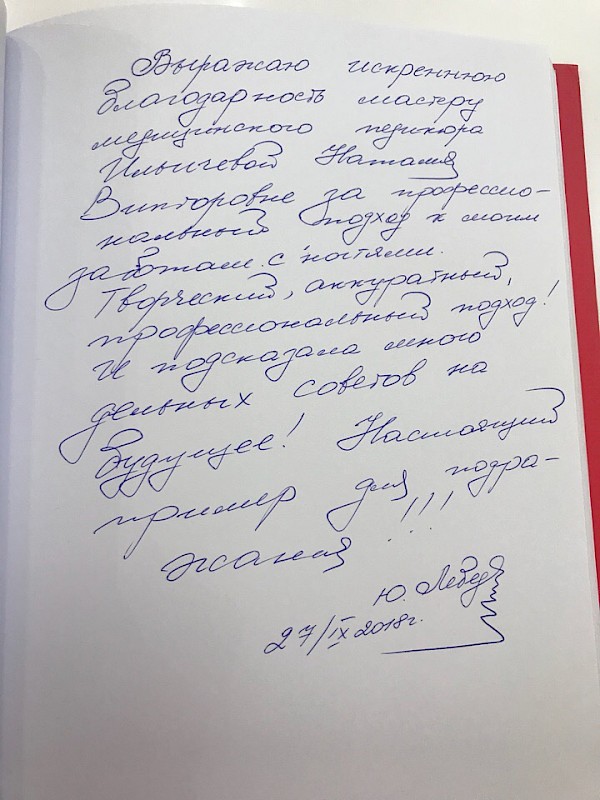 Выражаю искреннюю
благодарность мастеру
медицинского педикюра
Ильичевой Наталия
Викторовне за профессио-
нальный подход к моим
заботам с ногтями.
Творческий, аккуратный,
профессиональный подход!
И подсказала много
дельных советов на
будущее! Настоящий
пример для подра-
жания !!!
Ю. Лебед
27/IX 2018г.